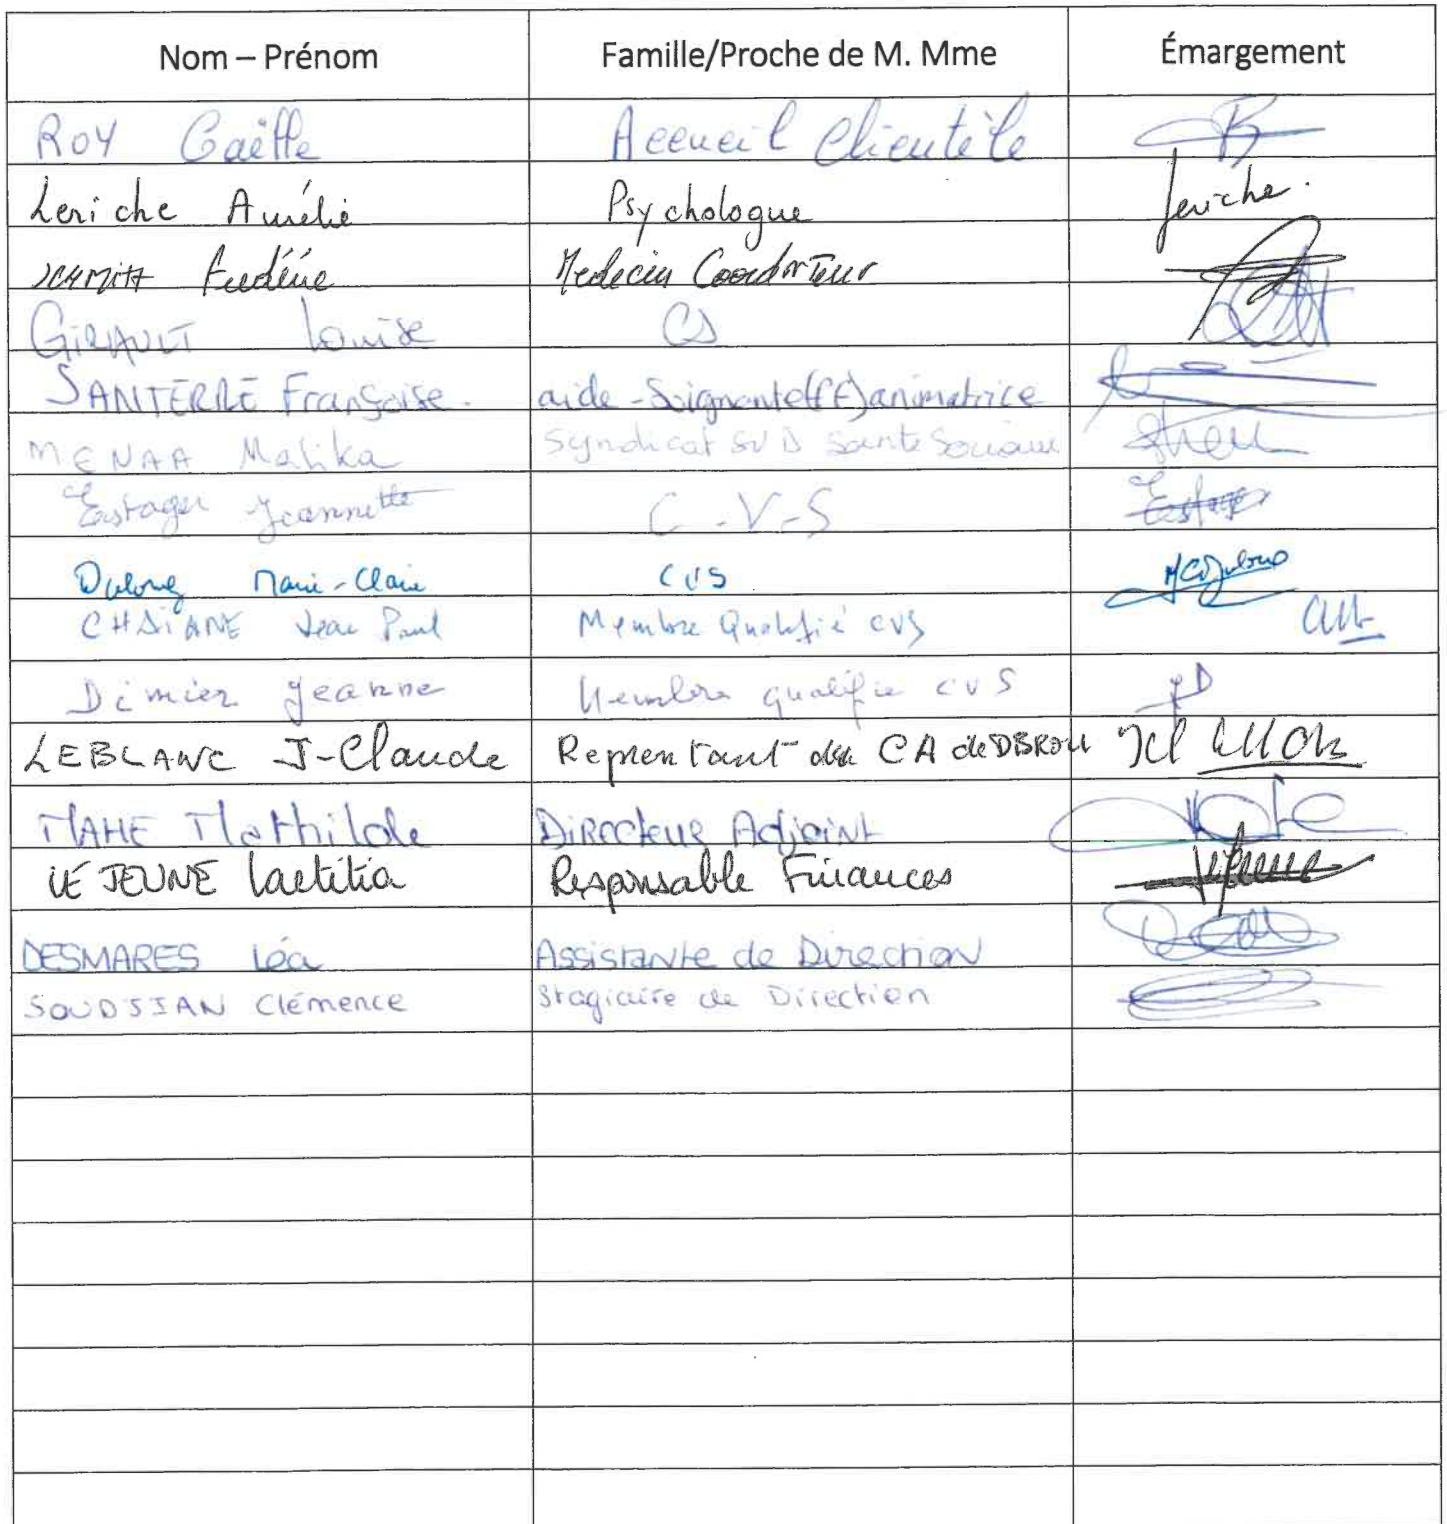 Nom – Prénom Famille/Proche de M. Mme Émargement
ROY Gaëlle Accueil Clientèle
Leriche Aurélie Psychologue Leriche.
SCHMITT Médecin Coordonateur
GIRAULT Louise CS
SANTERRE Françoise. aide-Soignante(FF)animatrice
MENAA Malika Syndicat SUD Sante Sociaux
Estager Jeannette C-V-S Estager
Dulong Marie-Claire CVS MCDulong
CHAIANE Jean Paul Membre Qualifié CVS
Dimier Jeanne Membre qualifie CVS JD
LEBLANC J-Claude CA de
MAHE Mathilde Directeur Adjoint
LE JEUNE Laetitia Responsable Finances
DESMARES Léa Assistante de Direction
SOUDJIAN Clémence Stagiaire de Direction